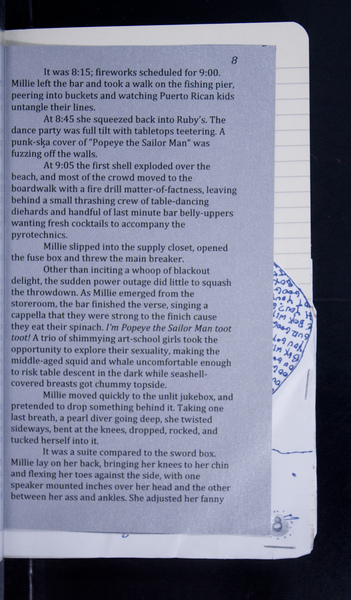 8
It was 8:15; fireworks scheduled for 9:00.
Millie left the bar and took a walk on the fishing pier,
peering into buckets and watching Puerto Rican kids
untangle their lines.
At 8:45 she squeezed back into Ruby's. The
dance party was full tilt with tabletops teetering. A
punk-ska cover of "Popeye the Sailor Man" was
fuzzing off the walls.
At 9:05 the first shell exploded over the
beach, and most of the crowd moved to the
boardwalk with a fire drill matter-of-factness, leaving
behind a small thrashing crew of table-dancing
diehards and handful of last minute bar belly-uppers
wanting fresh cocktails to accompany the
pyrotechnics.
Millie slipped into the supply closet, opened
the fuse box and threw the main breaker.
Other than inciting a whoop of blackout
delight, the sudden power outage did little to squash
the throwdown. As Millie emerged from the
storeroom, the bar finished the verse, singing a
cappella that they were strong to the finich cause
they eat their spinach. I'm Popeye the Sailor Man toot
toot! A trio of shimmying art-school girls took the
opportunity to explore their sexuality, making the
middle-aged squid and whale uncomfortable enough
to risk table descent in the dark while seashell-
covered breasts got chummy topside.
Millie moved quickly to the unlit jukebox, and
pretended to drop something behind it. Taking one
last breath, a pearl diver going deep, she twisted
sideways, bent at the knees, dropped, rocked, and
tucked herself into it.
It was a suite compared to the sword box.
Millie lay on her back, bringing her knees to her chin
and flexing her toes against the side, with one
speaker mounted inches over her head and the other
between her ass and ankles. She adjusted her fanny
8